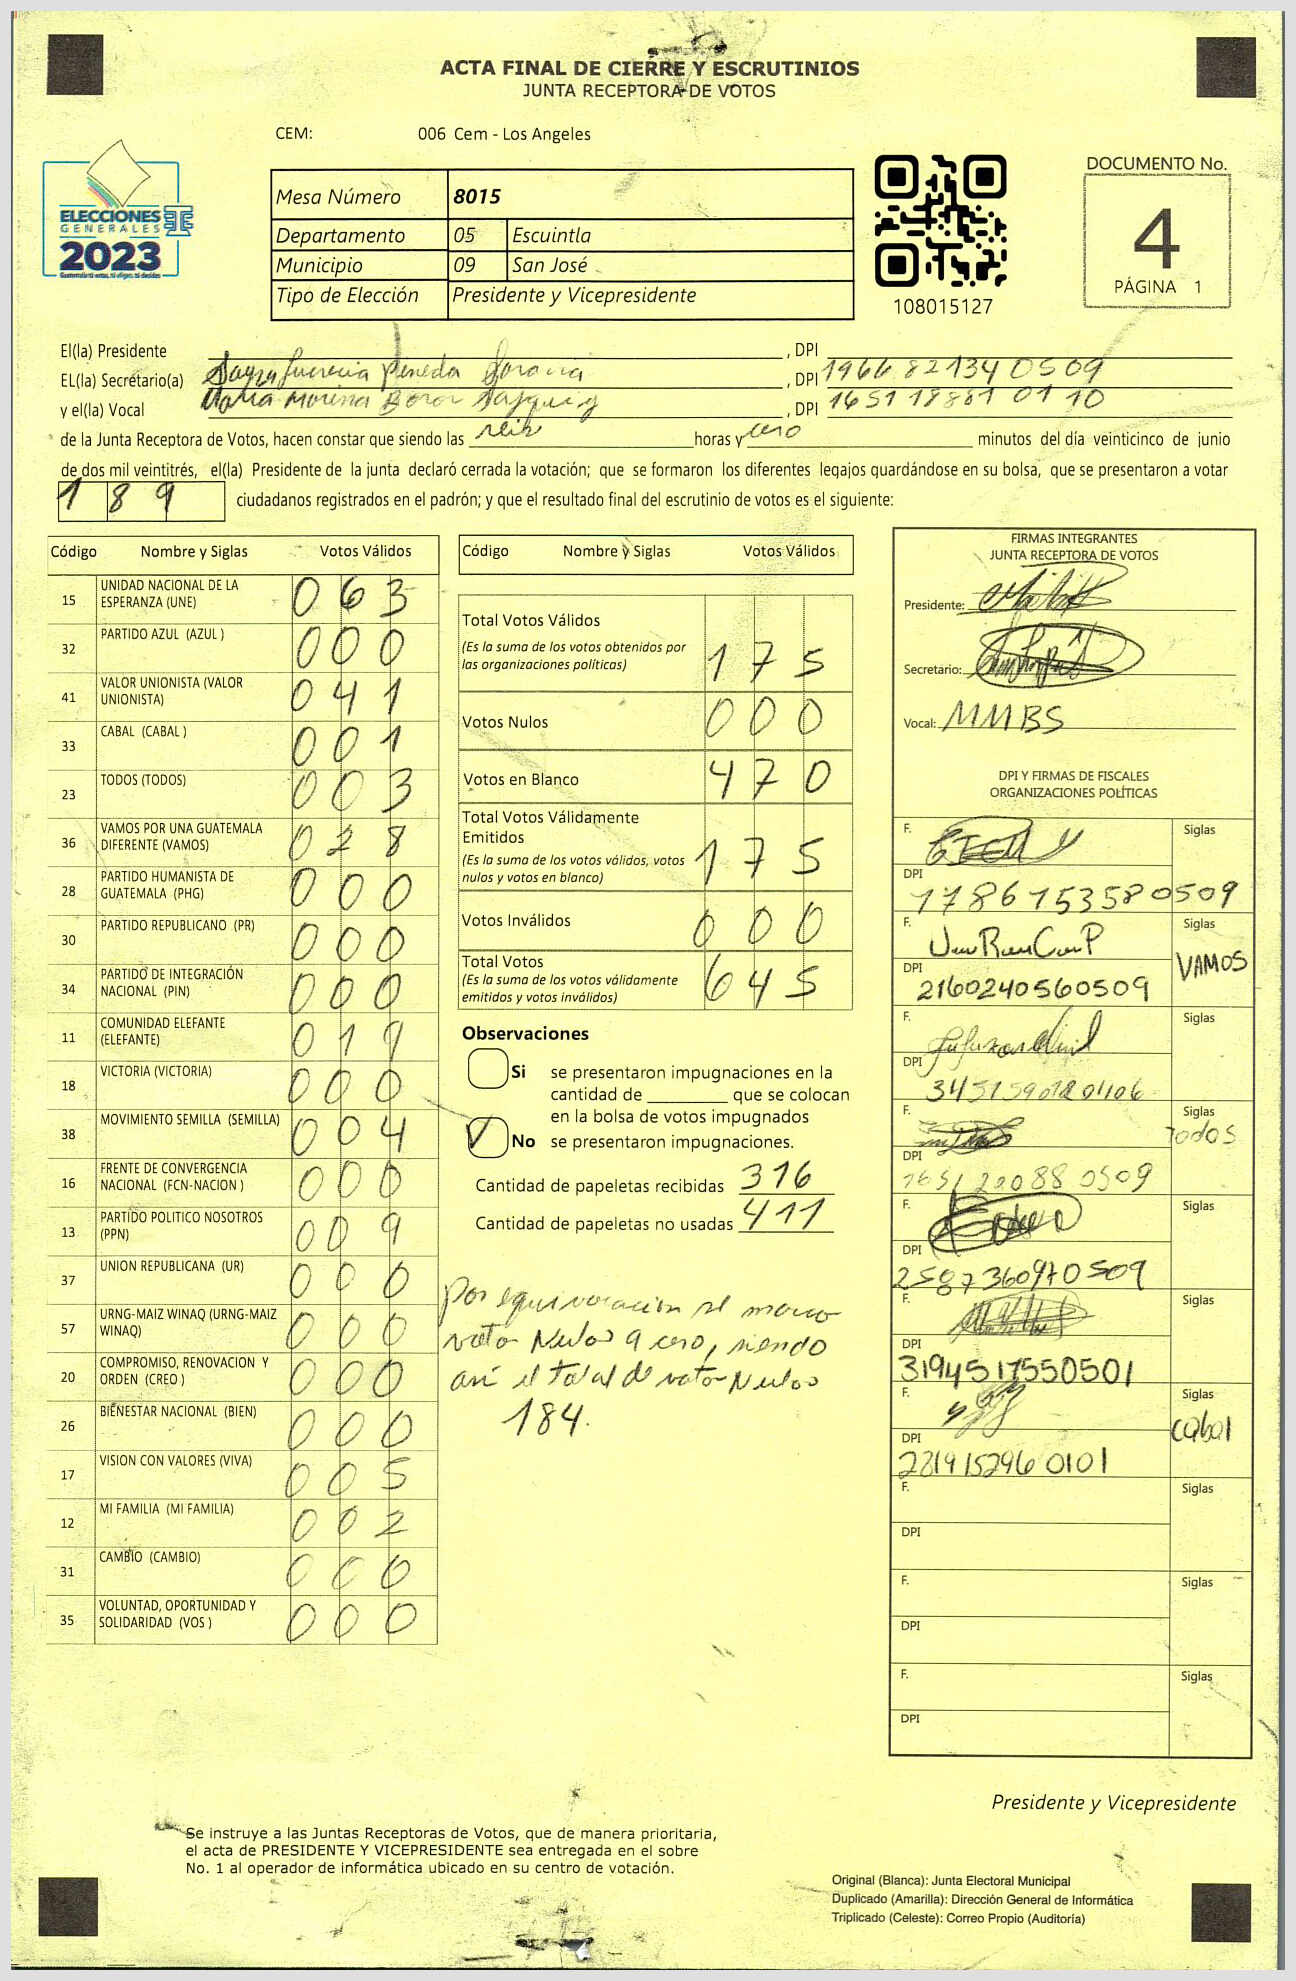 ACTA FINAL DE CIERRE Y ESCRUTINIOS
JUNTA RECEPTORA DE VOTOS
CEM: 006 Cem - Los Angeles
ELECCIONES
GENERALES
2023
Guatemala tú votas, tú eliges, tú decides
Mesa Número 8015
Departamento 05 Escuintla
Municipio 09 San José
Tipo de Elección Presidente y Vicepresidente
108015127
DOCUMENTO No.
4
PÁGINA 1
El(la) Presidente , DPI
EL(la) Secretario(a) Lucrecia Pineda , DPI 1966 82134 0509
y el(la) Vocal Maria Morena Boror , DPI 1651 18881 01 10
de la Junta Receptora de Votos, hacen constar que siendo las seis horas y cero minutos del día veinticinco de junio
de dos mil veintitrés, el(la) Presidente de la junta declaró cerrada la votación; que se formaron los diferentes legajos quardándose en su bolsa, que se presentaron a votar
189 ciudadanos registrados en el padrón; y que el resultado final del escrutinio de votos es el siguiente:
Código Nombre y Siglas Votos Válidos
15 UNIDAD NACIONAL DE LA ESPERANZA (UNE) 063
32 PARTIDO AZUL (AZUL ) 000
41 VALOR UNIONISTA (VALOR UNIONISTA) 041
33 CABAL (CABAL ) 001
23 TODOS (TODOS) 003
36 VAMOS POR UNA GUATEMALA DIFERENTE (VAMOS) 028
28 PARTIDO HUMANISTA DE GUATEMALA (PHG) 000
30 PARTIDO REPUBLICANO (PR) 000
34 PARTIDO DE INTEGRACIÓN NACIONAL (PIN) 000
11 COMUNIDAD ELEFANTE (ELEFANTE) 019
18 VICTORIA (VICTORIA) 000
38 MOVIMIENTO SEMILLA (SEMILLA) 004
16 FRENTE DE CONVERGENCIA NACIONAL (FCN-NACION ) 000
13 PARTIDO POLITICO NOSOTROS (PPN) 009
37 UNION REPUBLICANA (UR) 000
57 URNG-MAIZ WINAQ (URNG-MAIZ WINAQ) 000
20 COMPROMISO, RENOVACION Y ORDEN (CREO ) 000
26 BIENESTAR NACIONAL (BIEN) 000
17 VISION CON VALORES (VIVA) 005
12 MI FAMILIA (MI FAMILIA) 002
31 CAMBIO (CAMBIO) 000
35 VOLUNTAD, OPORTUNIDAD Y SOLIDARIDAD (VOS ) 000
Código Nombre y Siglas Votos Válidos
Total Votos Válidos 175
(Es la suma de los votos obtenidos por
las organizaciones políticas)
Votos Nulos 000
Votos en Blanco 470
Total Votos Válidamente
Emitidos 175
(Es la suma de los votos válidos, votos
nulos y votos en blanco)
Votos Inválidos 000
Total Votos 645
(Es la suma de los votos válidamente
emitidos y votos inválidos)
Observaciones
Si se presentaron impugnaciones en la
cantidad de ________ que se colocan
en la bolsa de votos impugnados
No se presentaron impugnaciones.
Cantidad de papeletas recibidas 316
Cantidad de papeletas no usadas 411
Por equivocación se marco
votos Nulos a cero, siendo
así el total de votos Nulos
184.
FIRMAS INTEGRANTES
JUNTA RECEPTORA DE VOTOS
Presidente:
Secretario:
Vocal: MMBS
DPI Y FIRMAS DE FISCALES
ORGANIZACIONES POLÍTICAS
F. Siglas
DPI 1786153580509
F. Siglas VAMOS
DPI 2160240560509
F. Siglas
DPI
F. Siglas Todos
DPI
F. Siglas
DPI 2587360970509
F. Siglas
DPI 3194517550501
F. Siglas Cabal
DPI 2219152960101
F. Siglas
DPI
F. Siglas
DPI
F. Siglas
DPI
Presidente y Vicepresidente
Se instruye a las Juntas Receptoras de Votos, que de manera prioritaria,
el acta de PRESIDENTE Y VICEPRESIDENTE sea entregada en el sobre
No. 1 al operador de informática ubicado en su centro de votación.
Original (Blanca): Junta Electoral Municipal
Duplicado (Amarilla): Dirección General de Informática
Triplicado (Celeste): Correo Propio (Auditoría)